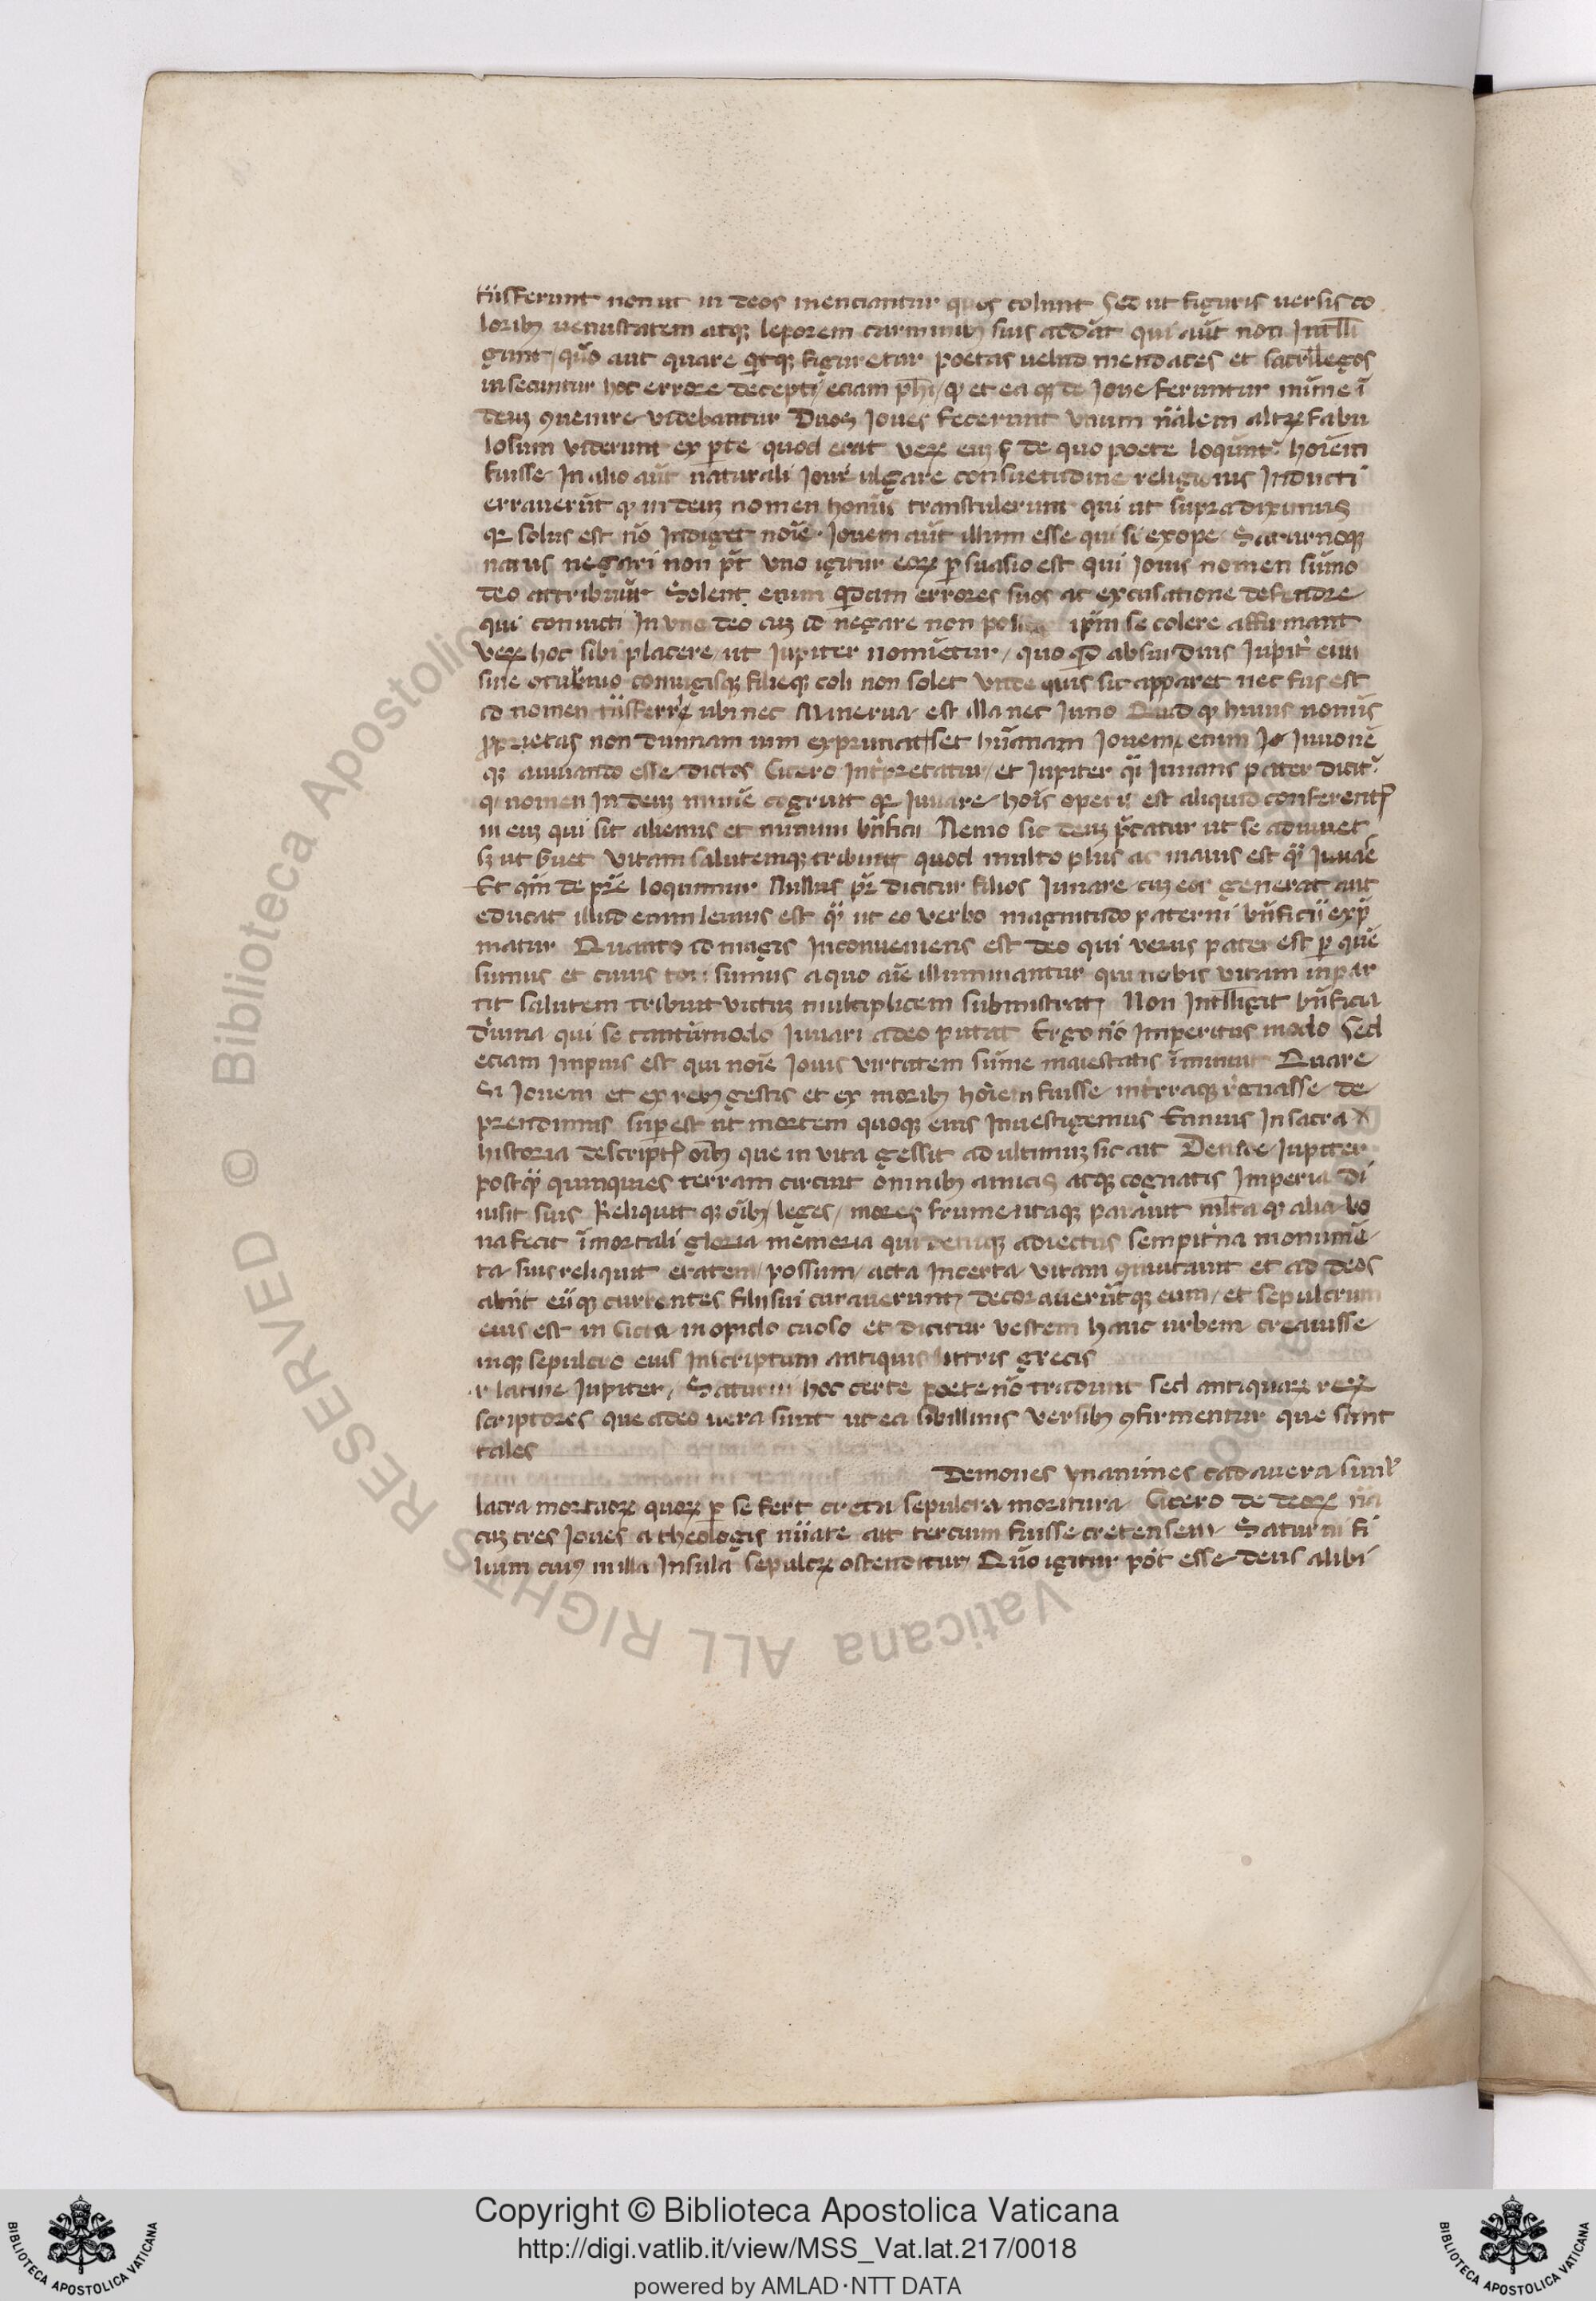 tñsferunt non ut in deos menciantur quos colunt Sed ut figuris uersis co
loribꝫ uenustatem atqꝫ leporem carminibꝫ suis addãt qui aũt non Intłłi
gunt quõ aut quare qͥtqꝫ figuretur poetas uelud mendaces et sacrilegos
insecuntur hoc errore decepti eciam pħi qꝫ et ea qꝫ de Joue feruntur mĩme ĩ
deuꝫ ꝯuenire videbantur Duos Joues fecerunt Vnum nãlem altꝝ fabu
losum viderunt ex pͣte quod erat veꝝ eũ de quo poete loqũntͬ hoiẽm
fuisse In alio aũt naturali Jouẽ ulgare consuetudine religionis Inducti
errauerũt qꝫ in deuꝫ nomen homĩs transtulerunt qui ut supra diximus
qꝛ solus est nõ Indiget noĩe Jouem aũt illum esse qui si ex ope Saturnoqꝫ
natus negari non pͭt Vno igitur eoꝝ ꝑsuasio est qui Jouis nomen sũmo
deo attribuũt Solent enim qͥdam errores suos ac excusatione defendre
qui conuicti In vno deo cuꝫ id negare non ipͥm se colere affirmant
Veꝝ hoc sibi placere ut Jupiter nomiẽtur quo qͥd absurdius Jupitͬ eim
sine coniugisqꝫ filieqꝫ coli non solet Vnde quis sit apparet nec fas est
id nomen tñsferre ubi nec Minerua est illa nec Juno Quid qꝫ huius nomĩs
ꝓprietas non diuinam uim exprimat set hũanam Jouem enim Juuonẽ
qꝫ aiuuando esse dictos Cicero Intͥpretatur et Jupiter qͣi Juuans pater dicitͬ
qꝫ nomen In deuꝫ mĩme cogruit qꝛ Juuare hoĩs operis est aliquid conferentͥ
in eꝫ qui sit alienus et minimi bñficii Nemo sic deuꝫ pͥcatur ut se adiuuet
sꝫ ut suet vitam salutemqꝫ tribuat quod multo plus ac maius est qͣ Juuaẽ
Et qm̃ de pͬe loquimur Nullus pͬ dicitur filios Juuare cuꝫ eos generat aut
educat illud enim leuius est qͣ ut eo verbo magnitudo paterni bñficii expͥ
matur Quanto id magis Inconueniens est deo qui verus pater est ꝑ quẽ
sumus et cuius toti sumus a quo aĩe illuminantur qui nobis vitam inpar
tit salutem tribuit victuꝫ multiplicem subministrat Non Intłłigit bñficia
diuina qui se tantũmodo Juuari a deo putat Ergo nõ Imperitus modo Sed
eciam Impius est qui noĩe Jouis virtutem sũme maiestatis ĩminuit Quare
Si Jouem et ex rebꝫ gestis et ex moribꝫ hoĩem fuisse intͬraqꝫ rͥgnasse de
prendimus supͥest ut mortem quoqꝫ eius Inuestigemus Ennius In sacra
historia descriptͥ oĩbꝫ que in vita gessit ad ultimuꝫ sic ait Deinde Jupiter
postqͣ quinquies terram circuit omnibꝫ amicis atqꝫ cognatis Imperia di
uisit suis Reliquit qꝫ oĩbꝫ leges mores frumentaqꝫ parauit mͭta qꝫ alia bo
na fecit ĩmortali gloria memoria qui deniqꝫ adiectus sempitͥna monumẽ
ta suis reliquit etatem possum acta Incerta vitam ꝯmutauit et ad deos
abiit eũqꝫ currentes filii sui curauerunt decorauerũtqꝫ eum et sepulcrum
eius est in Creta in opido cuoso et dicitur vestem hanc urbem creauisse
inqꝫ sepulcro eius Inscriptum antiquis littris grecis
latine Jupiter Saturni hoc certe poete nõ tradunt sed antiquaꝝ reꝝ
scriptores que adeo uera sunt ut ea sibillinis versibꝫ ꝯfirmentur que sunt
tales
Demones ynanimes cadauera simͥ
lacra mortuoꝝ quoꝝ ꝑ se fert creta sepulcra moritura Cicero de deoꝝ nã
cuꝫ tres Joues a theologis nũare ait tercium fuisse cretensem Saturni fi
lium cuiꝰ in illa Insula sepulcꝝ ostenditur Quõ igitur pot̃ esse deus alibi
Copyright © Biblioteca Apostolica Vaticana
http://digi.vatlib.it/view/MSS_Vat.lat.217/0018
powered by AMLAD·NTT DATA
BIBLIOTECA APOSTOLICA VATICANA
BIBLIOTECA APOSTOLICA VATICANA
© Biblioteca Apostolica Vaticana ALL RIGHTS RESERVED